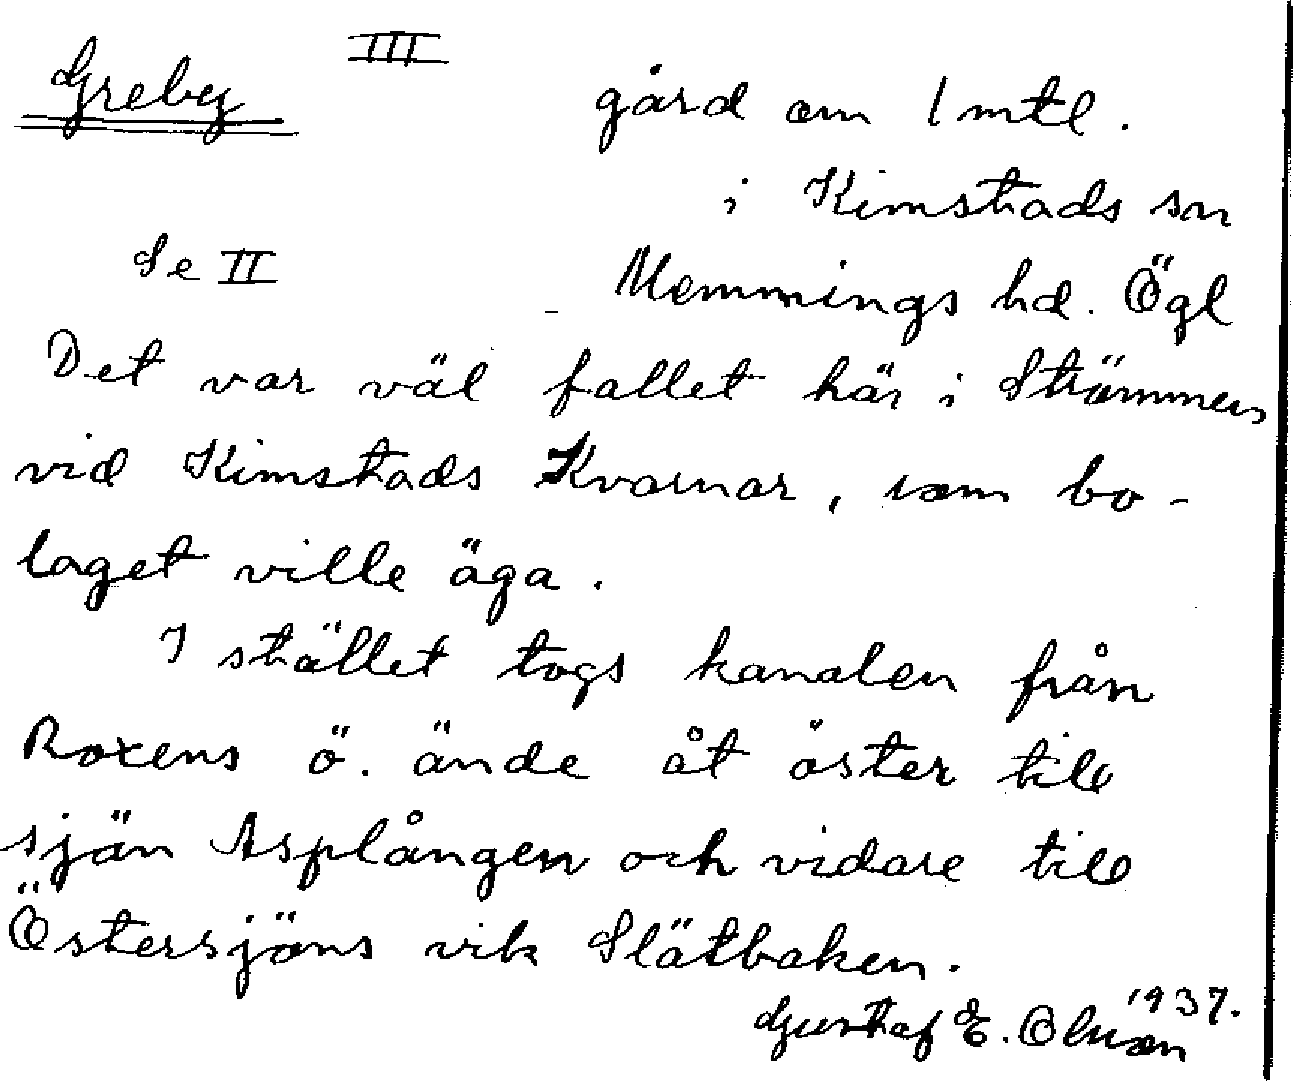 III
Greby gård om 1 mtl.
i Kimstads sn
Se II Memmings hd. Ögl
Det var väl fallet här i Strömmen
vid Kimstads Kvarnar, som bo-
laget ville äga.
I stället togs kanalen från
Roxens ö. ände åt öster till
sjön Asplången och vidare till
Östersjöns vik Slätbaken.
1937.
Gustaf E. Olsson